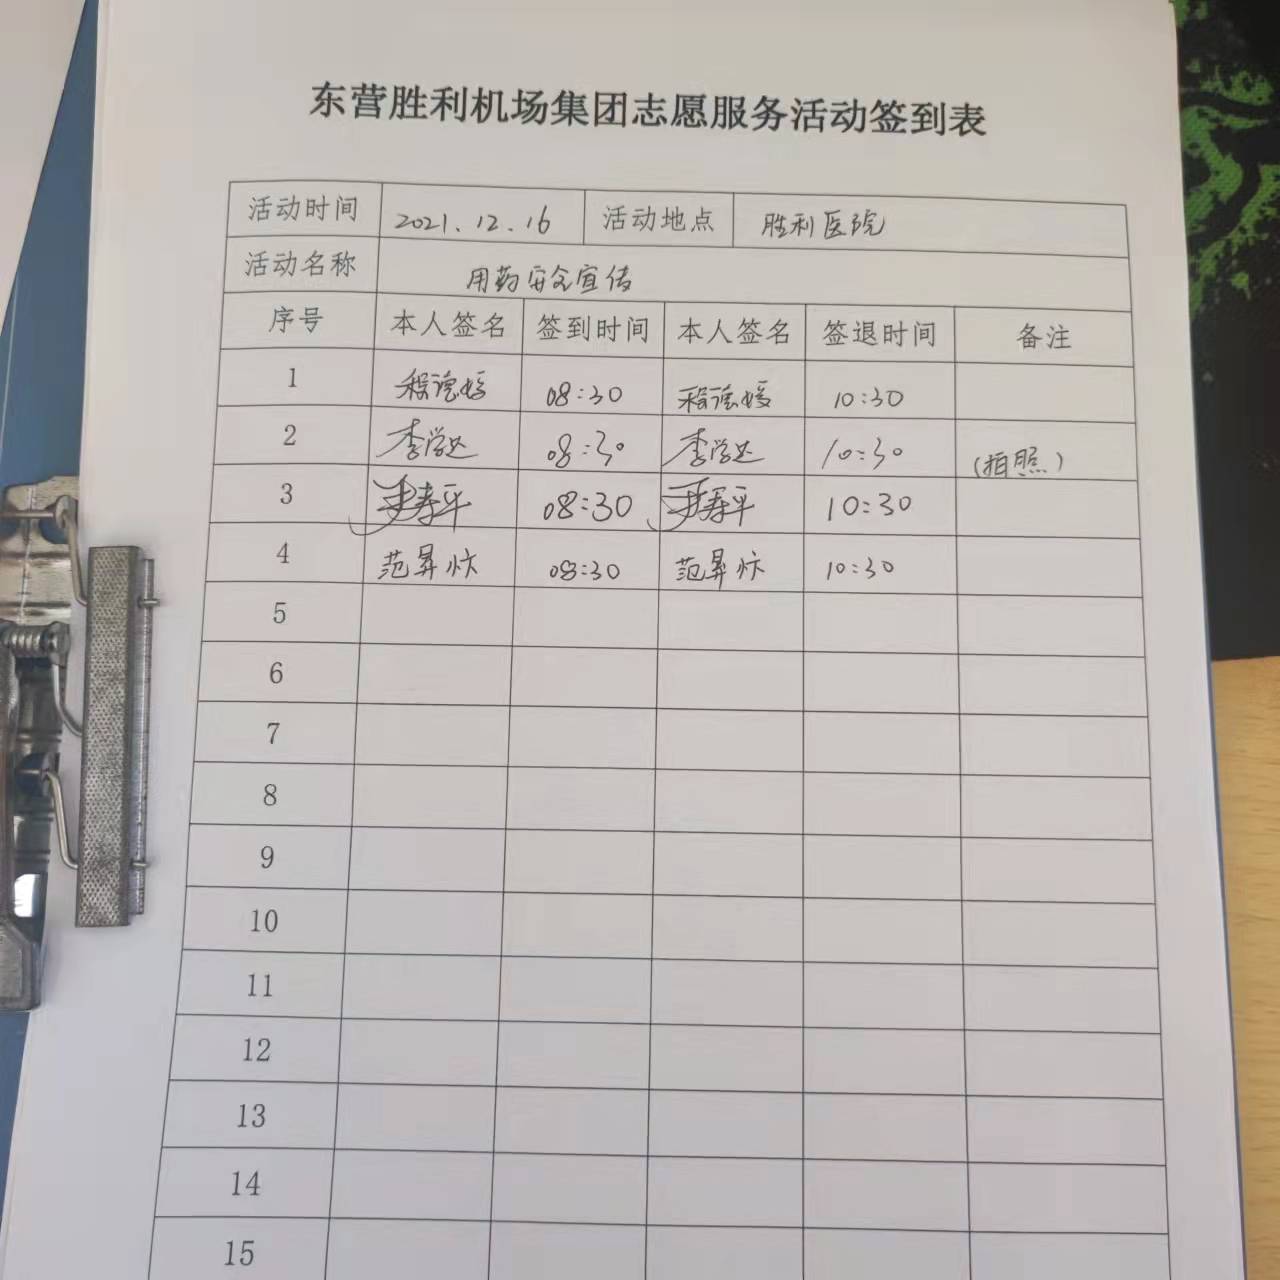 东营胜利机场集团志愿服务活动签到表
活动时间 2021.12.16 活动地点 胜利医院
活动名称 用药安全宣传
序号 本人签名 签到时间 本人签名 签退时间 备注
1 程德媛 08:30 程德媛 10:30
2 李学 08:30 李学 10:30 (拍照)
3 寿平 08:30 寿平 10:30
4 范昇 08:30 范昇 10:30
5
6
7
8
9
10
11
12
13
14
15